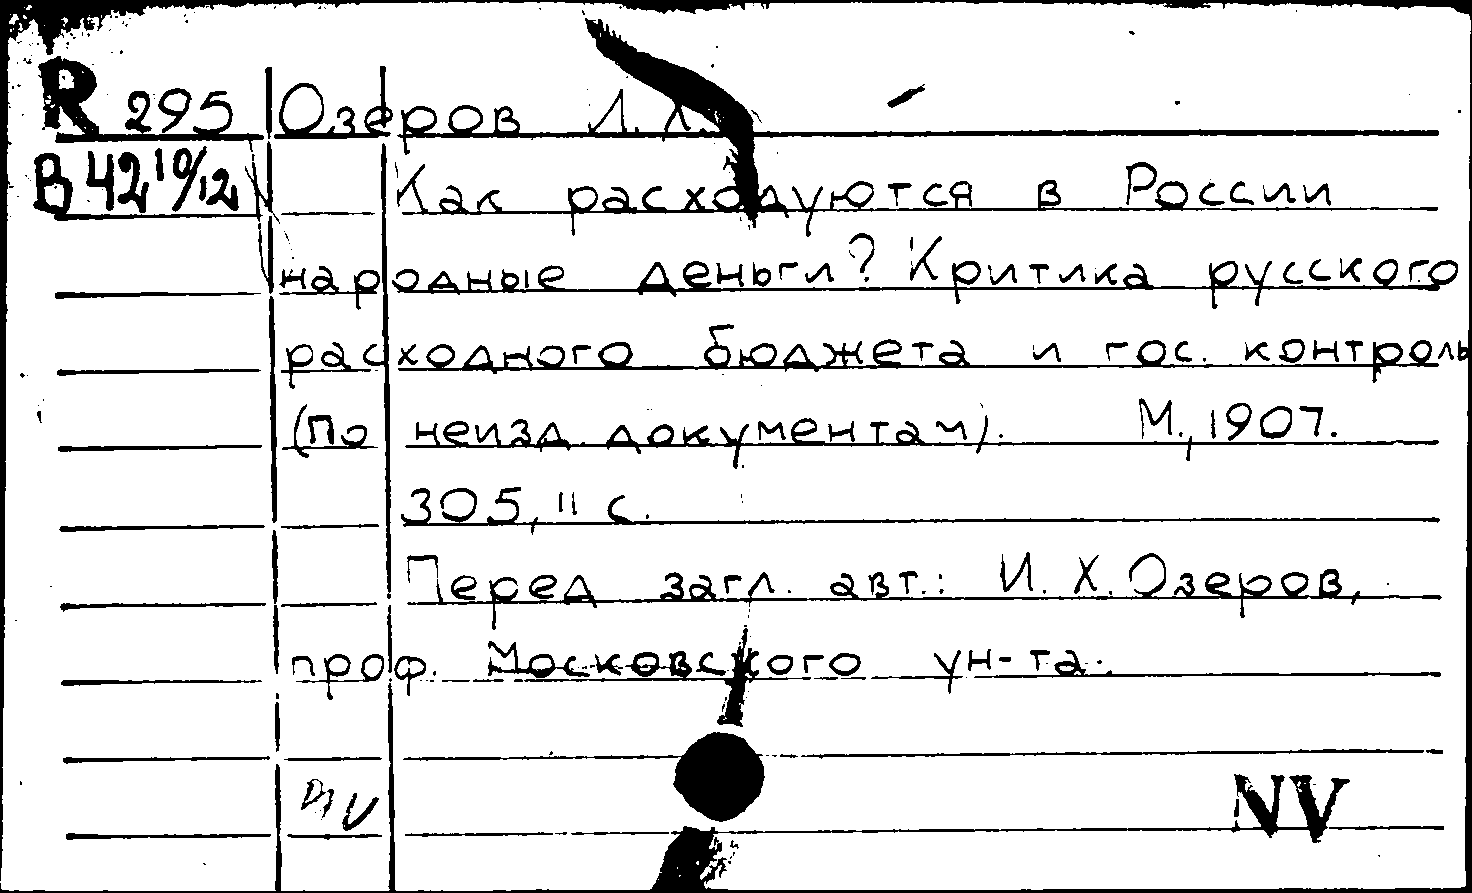 R 295 Озеров И. Х.
В 42 10/12 Как расходуются в России
народные деньги? Критика русского
расходного бюджета и гос. контроль
(По неизд. документам). М., 1907.
305, II с.
Перед загл. авт.: И. Х. Озеров,
проф. Московского ун-та.
NV